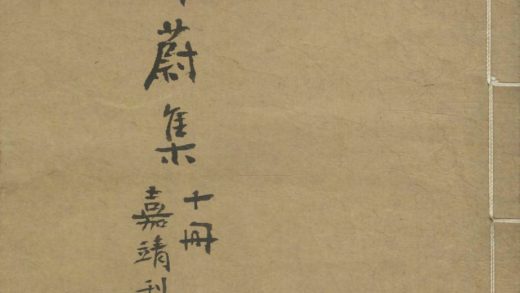 蔚集
十冊
嘉靖刊